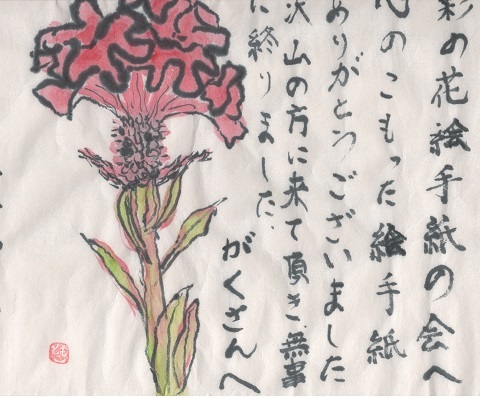 彩の花絵手紙の会へ
心のこもった絵手紙
ありがとうございました
沢山の方に来て頂き無事
に終りました.
がくさんへ